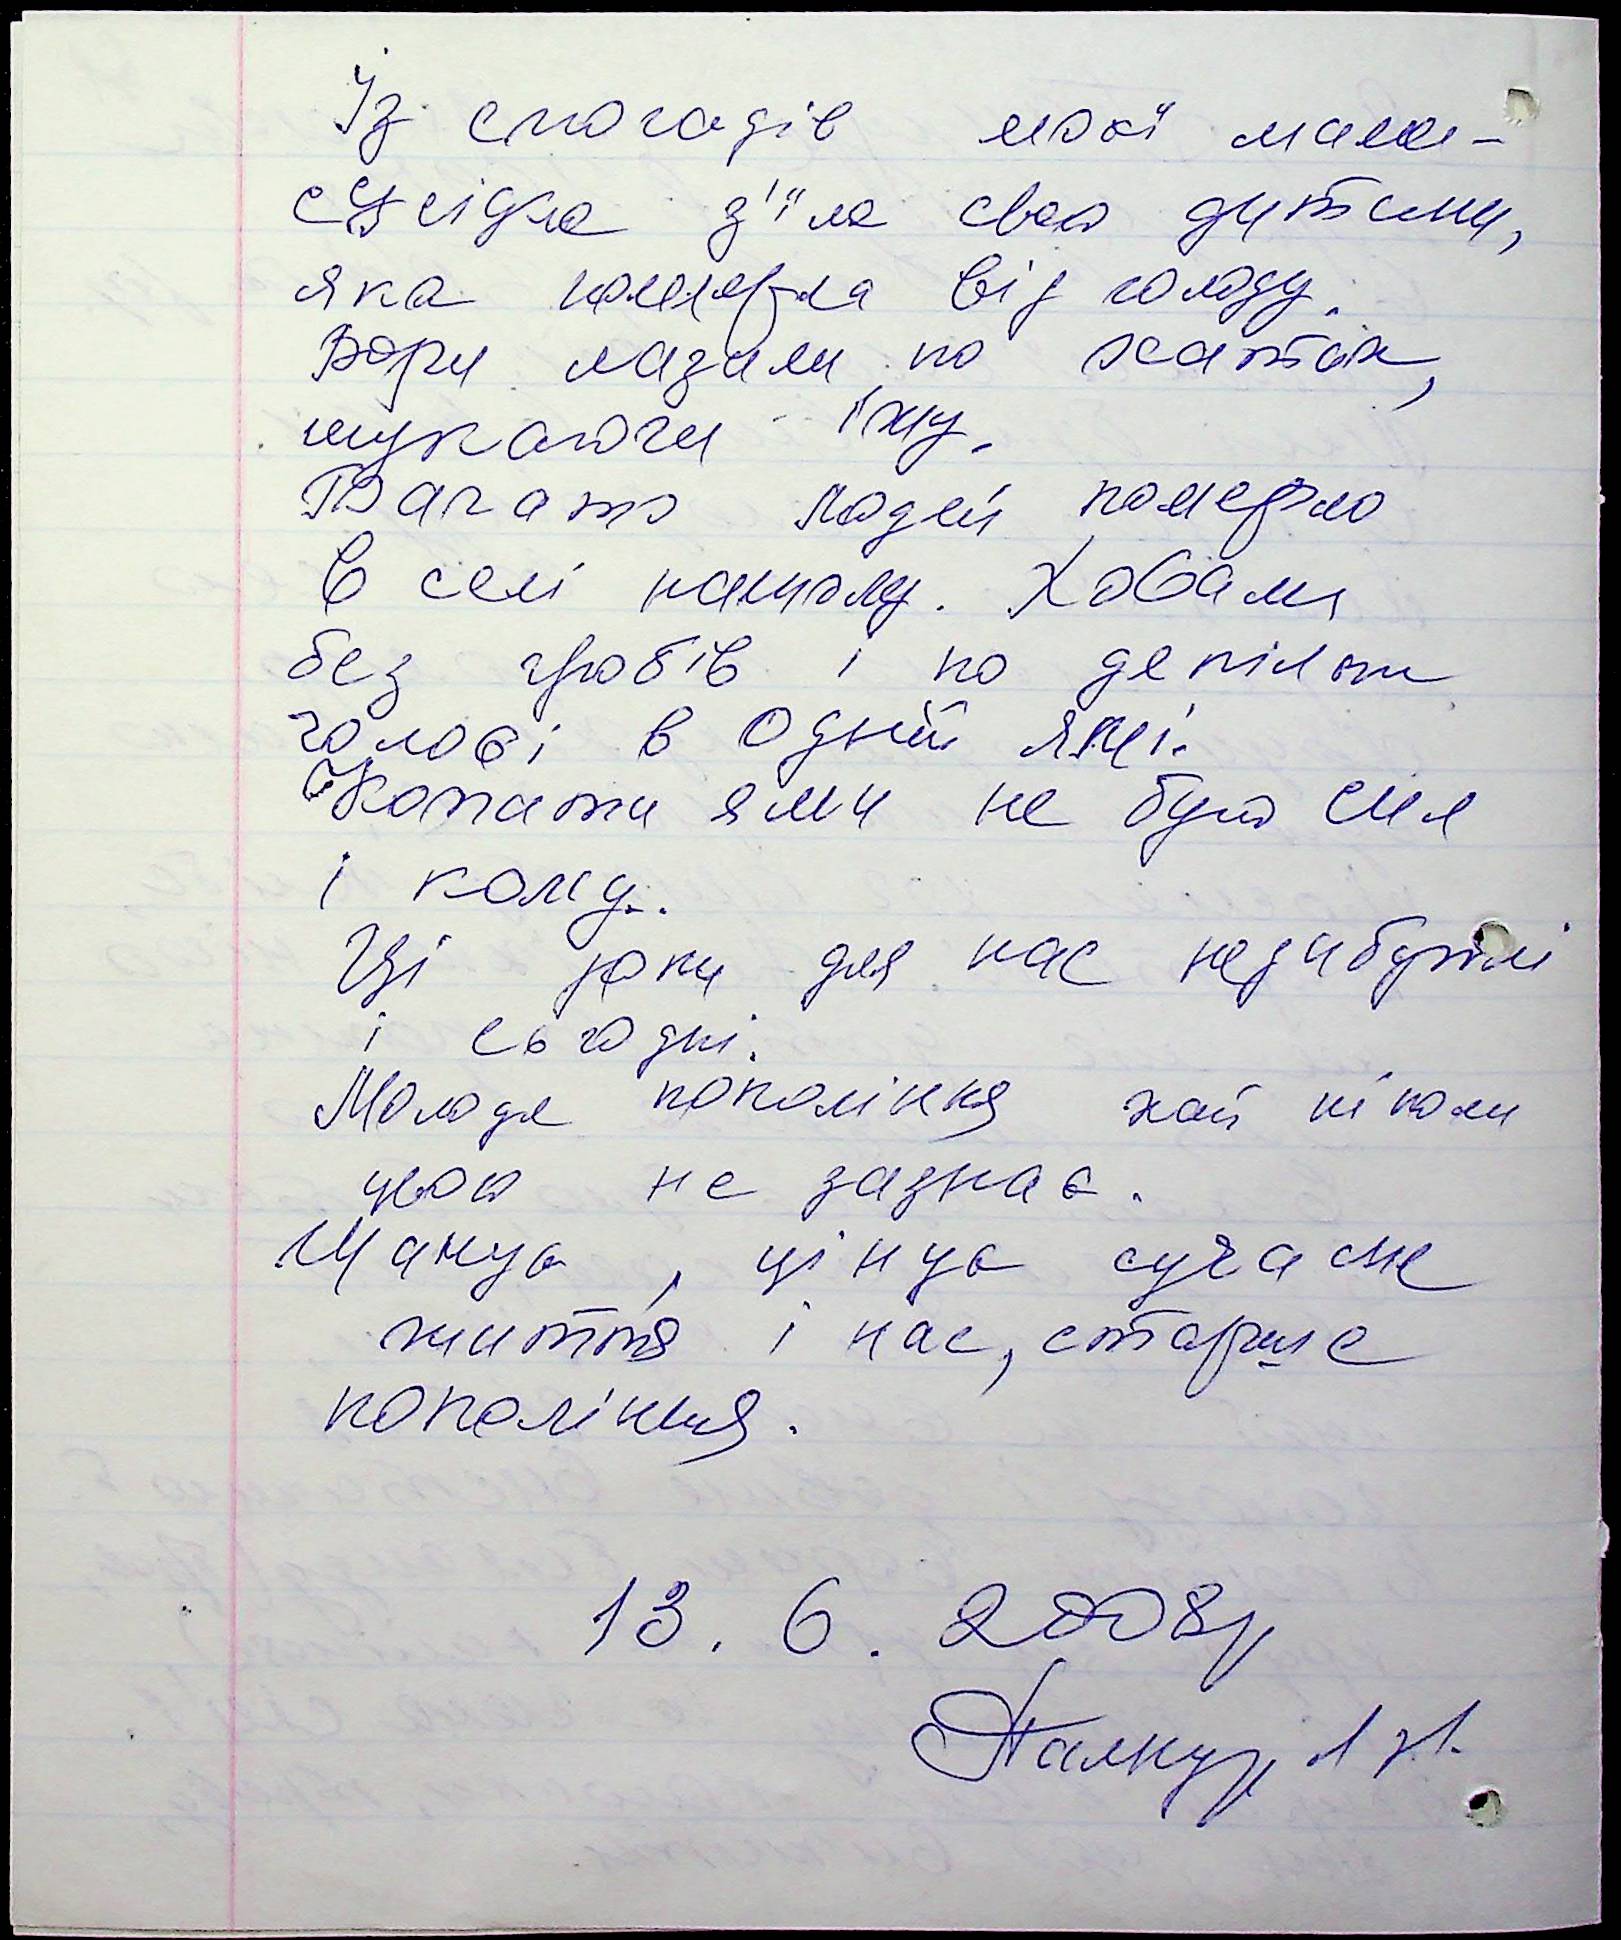 Із спогадів моєї мами -
сусідка з'їла свою дитину,
яка померла від голоду.
Вори лазили по хатах,
шукаючи їжу.
Багато людей померло
в селі нашому. Ховали
без гробів і по декілька
голові в одній ямі.
Копати ями не було сил
і кому..
Ці роки для нас незабутні
і сьогодні.
Молоде покоління хай ніколи
цього не зазнає.
Шанує, цінує сучасне
життя і нас, старше
покоління.
13. 6. 2008р